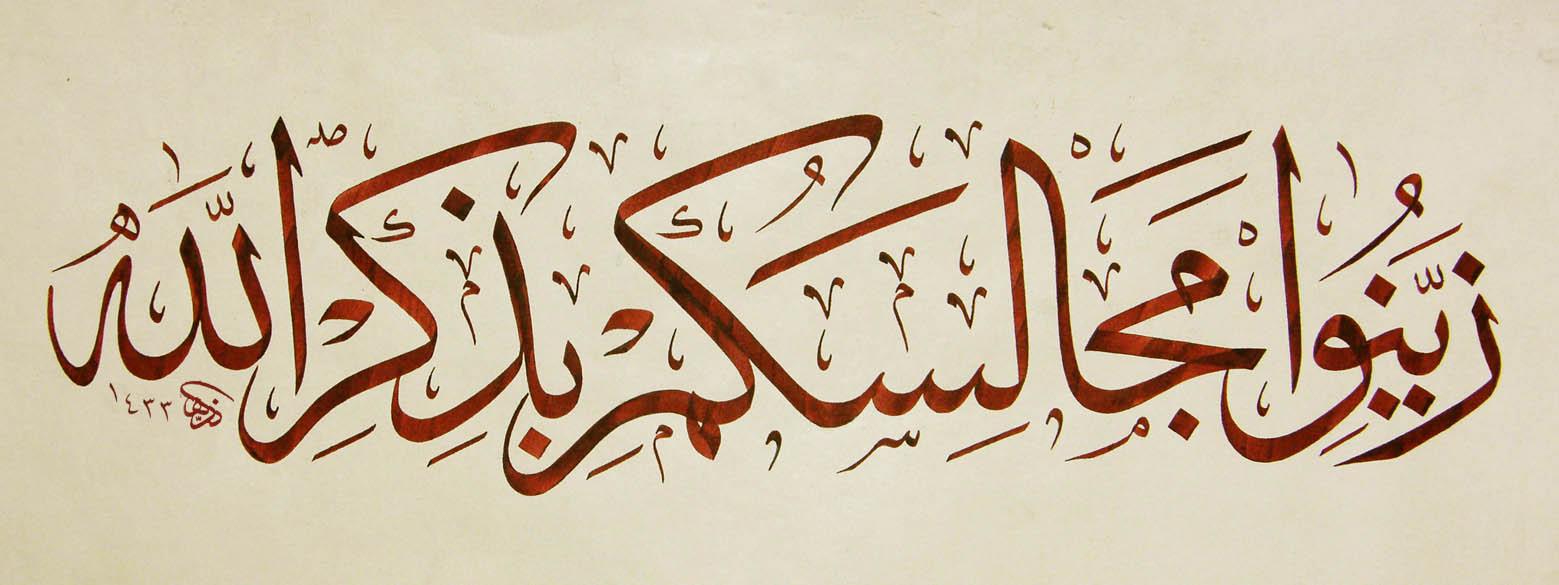 زَيِّنُوا مَجَالِسَكُمْ بِذِكْرِ اللَّهِ
١٤٣٣